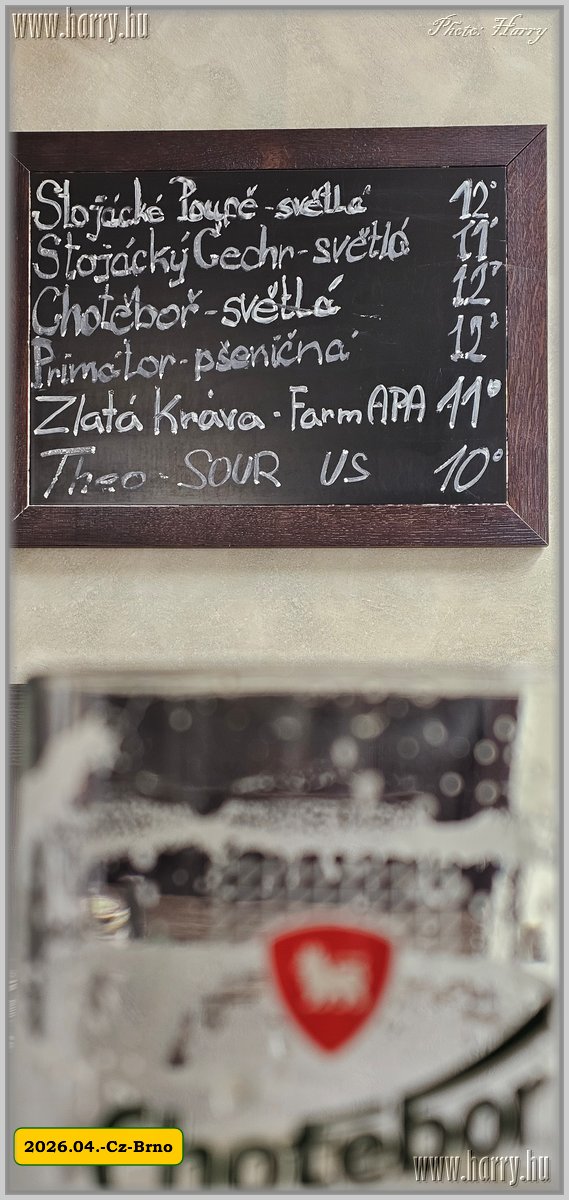 www.harry.hu
Photo: Harry
Slojácké Poupě - světlá 12°
Stojácký Čechr - světlá 11°
Chotěboř - světlá 12°
Primátor - pšeničná 12°
Zlatá Kráva - Farm APA 11°
Theo - SOUR US 10°
Chotěboř
2026.04.-Cz-Brno
www.harry.hu